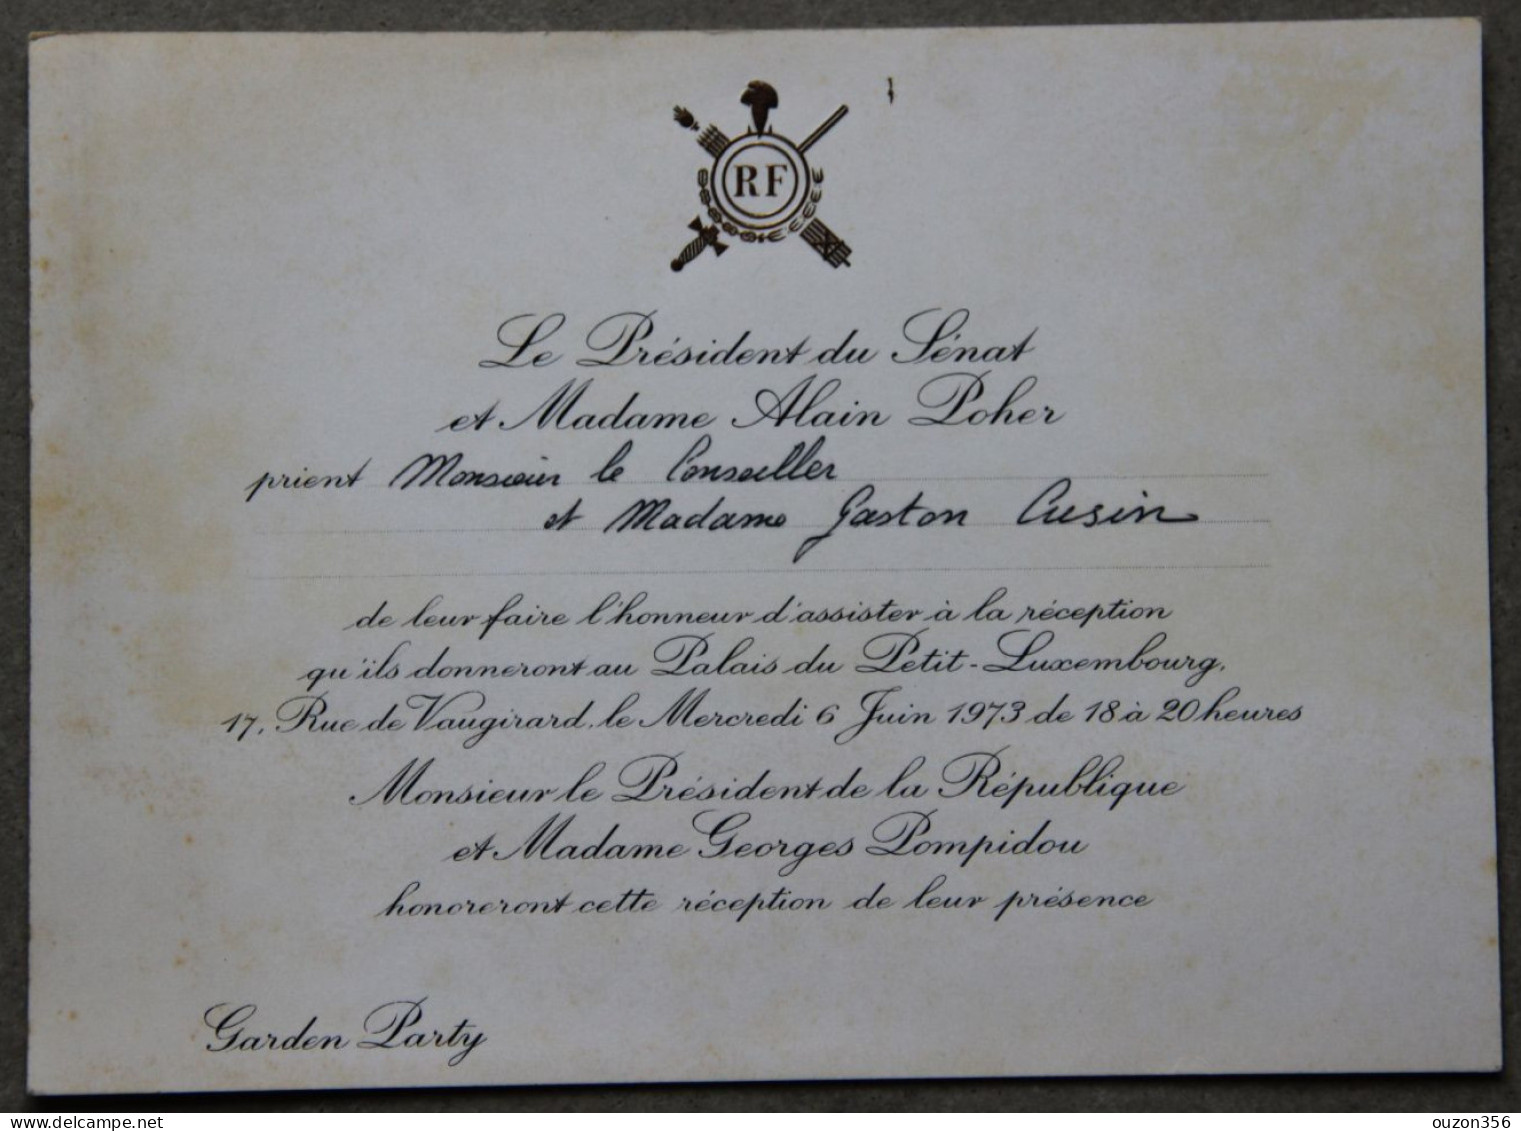 RF
Le Président du Sénat
et Madame Alain Poher
prient Monsieur le Conseiller
et Madame Gaston Cusin
de leur faire l'honneur d'assister à la réception
qu'ils donneront au Palais du Petit-Luxembourg,
17, Rue de Vaugirard, le Mercredi 6 Juin 1973 de 18 à 20 heures
Monsieur le Président de la République
et Madame Georges Pompidou
honoreront cette réception de leur présence
Garden Party
delcampe.net
ouzon356